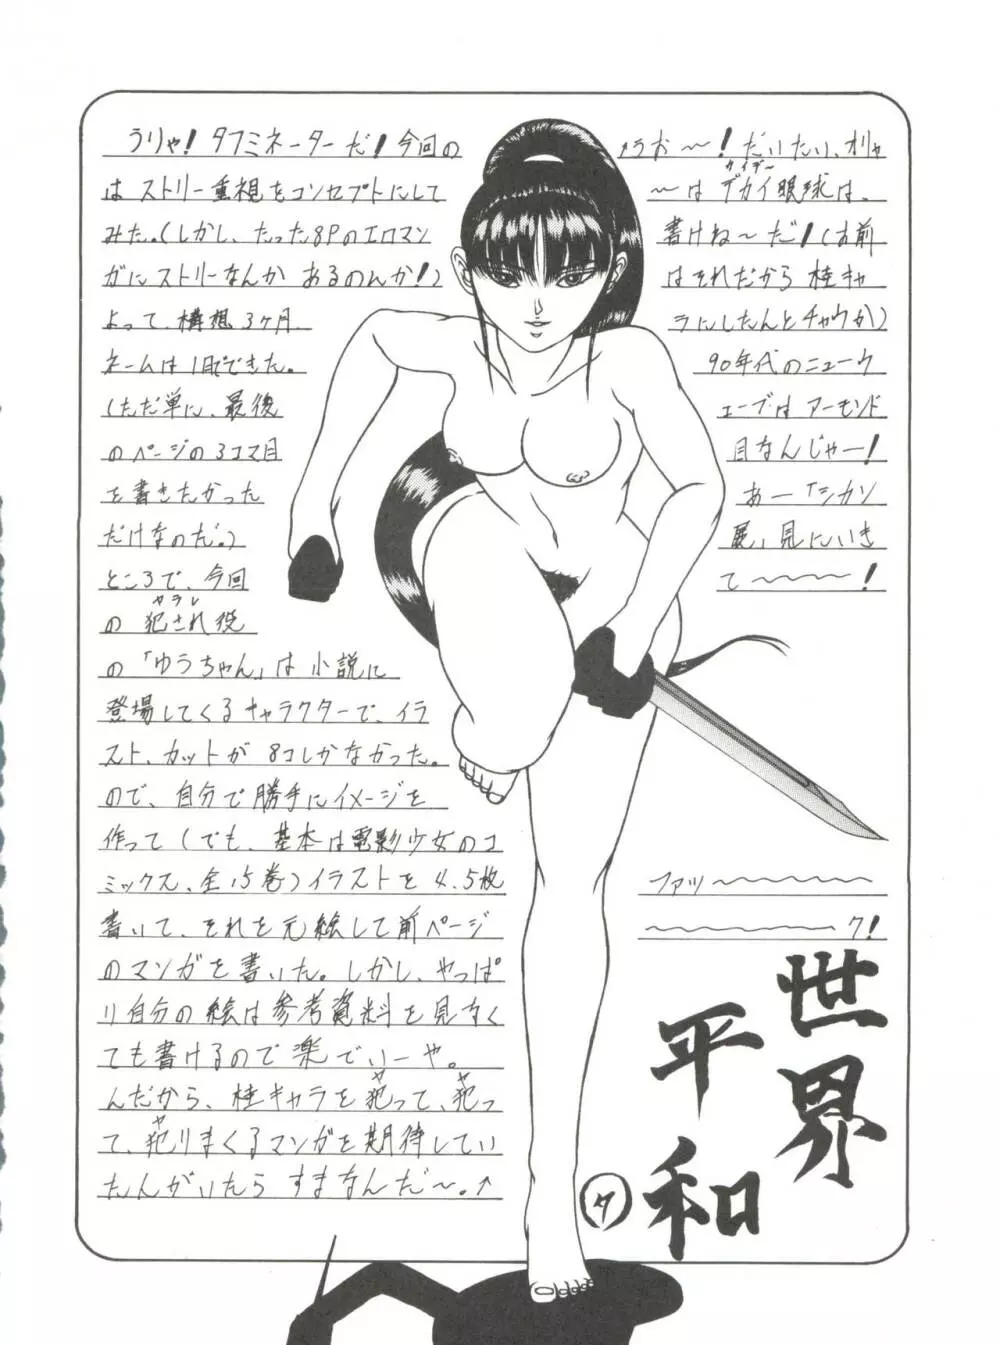 うりゃ！タフミネーターだ！今回の
はストリー重視をコンセプトにして
みた。（しかし、たった8Pのエロマン
ガにストリーなんかあるのんか！）
よって、構想3ヶ月、
ネームは1日でできた。
（ただ単に、最後
のページの3コマ目
を書きたかった
だけなのだ。）
ところで、今回
の犯され役
ヤラレ
の「ゆうちゃん」は小説に
登場してくるキャラクターで、イラ
スト、カットが8コしかなかった。
ので、自分で勝手にイメージを
作って（でも、基本は電影少女のコ
ミックス、全15巻）イラストを4.5枚
書いて、それを元絵して前ページ
のマンガを書いた。しかし、やっぱ
り自分の絵は参考資料を見なく
ても書けるので楽でいーや。
んだから、桂キャラを犯って、犯っ
ヤ ヤ
て、犯りまくるマンガを期待してい
ヤ
たんがいたらすまなんだ〜。↑
うお〜！だいたい、オりゃ
〜はデカイ眼球は、
カイデー
書けね〜だ！（お前
はそれだから桂キャ
ラにしたんとチャウか）
90年代のニューウ
ェーブはアーモンド
目なんじゃー！
あー「シカソ
展」見にいき
て〜〜〜！
ファッ〜〜〜〜〜
〜〜〜〜〜〜ク！
世界
平和
タ